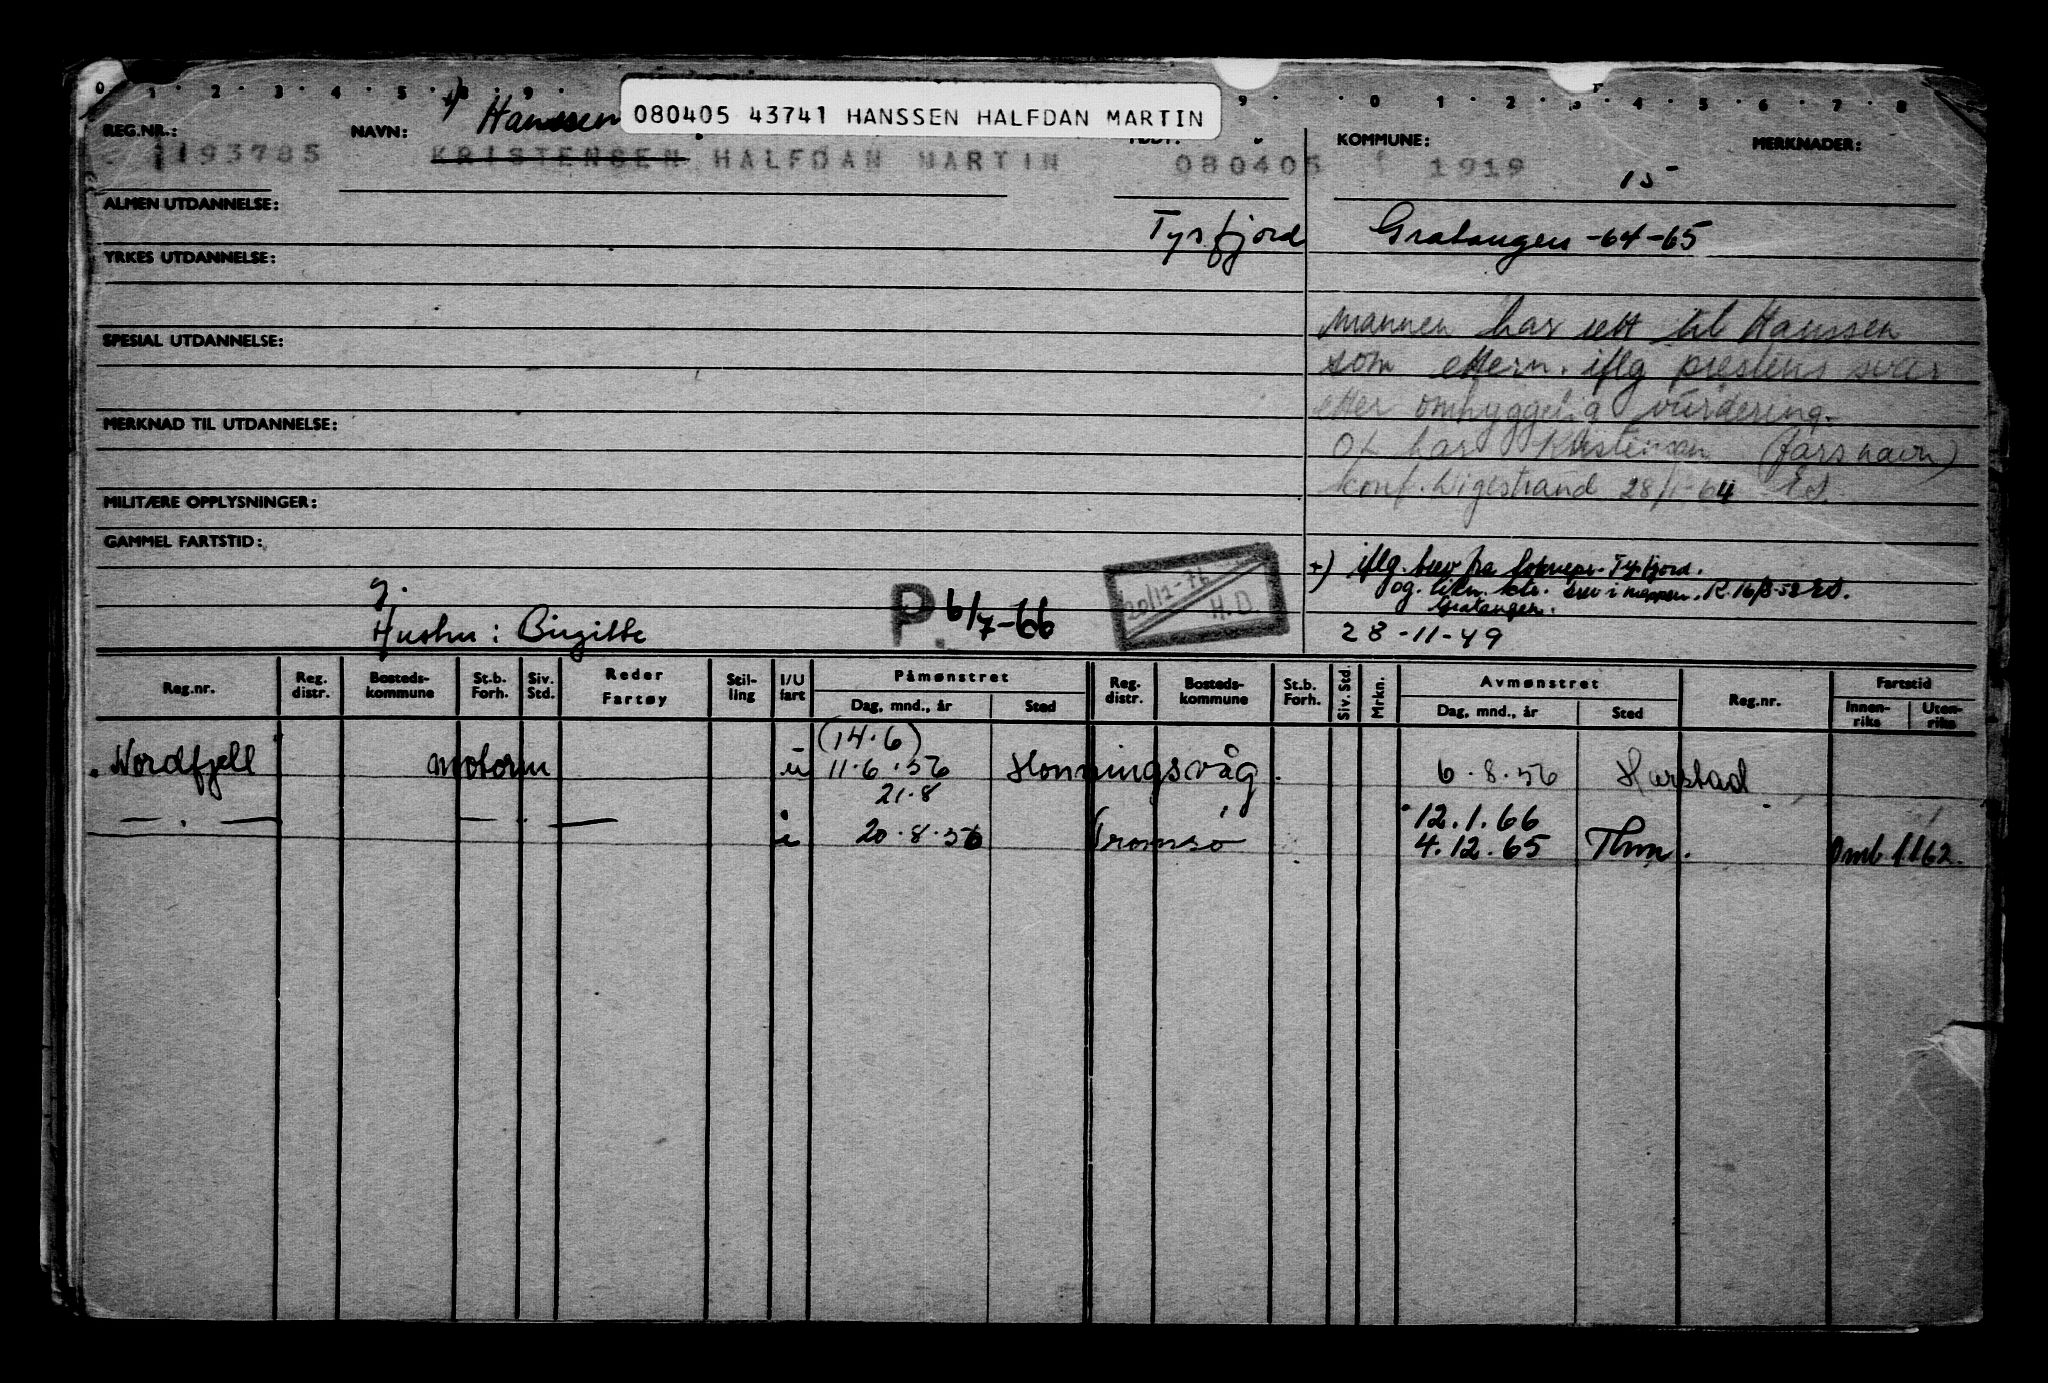 0 1 2 3 4 5 8 9 9 0 1 2 3 4 5 6 7 8
080405 43741 HANSSEN HALFDAN MARTIN
Hanssen
REG.NR.: NAVN: KOMMUNE: MERKNADER:
1193785 KRISTENSEN HALFDAN MARTIN 080405 1919 15
ALMEN UTDANNELSE:
Tysfjord Gratangen -64-65
YRKES UTDANNELSE:
Mannen har rett til Hanssen
SPESIAL UTDANNELSE:
som ettern. iflg prestens svar
etter omhyggelig vurdering.
MERKNAD TIL UTDANNELSE:
OK har Kristensen (farsnavn)
konf. Wigestrand 28/1-64
MILITÆRE OPPLYSNINGER:
GAMMEL FARTSTID:
+) iflg. brev fra soknepr. Tysfjord.
og. likn. ktr. brev i mappen. R. 16/8-52
Gratangen.
g.
20/12-76 H.D.
P. 6/7-66
Hustru: Birgitte
28-11-49
Reg.nr. Reg. distr. Bosteds- kommune St.b. Forh. Siv. Std. Reder Fartøy Stil- ling I/U fart Påmønstret Dag, mnd., år Sted Reg. distr. Bosteds- kommune St.b. Forh. Siv. Std. Mrkn. Avmønstret Dag, mnd., år Sted Reg.nr. Fartstid Innen- riks Uten- riks
(14.6)
Nordfjell motorm u 11.6.56 Honningsvåg. 6.8.56 Harstad
21.8
12.1.66
— . — — . — i 20.8.56 Tromsø 4.12.65 Thm. Omb. 1.1.62.